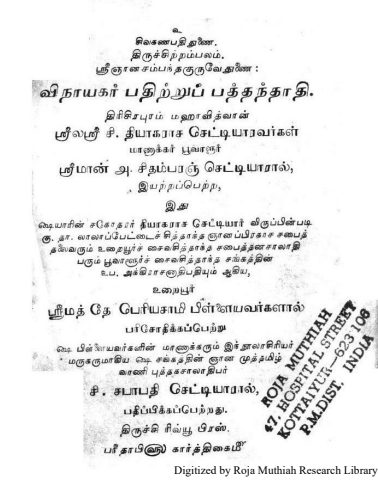 உ
சிவகணபதி துணை.
திருச்சிற்றம்பலம்.
ஸ்ரீஞானசம்பந்தகுருவேதுணை:
விநாயகர் பதிற்றுப் பத்தந்தாதி.
திரிசிரபுரம் மஹாவித்வான்
ஸ்ரீலஸ்ரீ சி. தியாகராச செட்டியாரவர்கள்
மாணாக்கர் பூவாளூர்
ஸ்ரீமான் அ. சிதம்பரஞ் செட்டியாரால்,
இயற்றப்பெற்ற,
இது
ஷெயாரின் சகோதரர் தியாகராச செட்டியார் விருப்பின்படி
கு. தா. லாலாப்பேட்டைச் சித்தாந்த ஞானப்பிரகாச சபைத்
தலைவரும் உறையூர்ச் சைவசித்தாந்த சபைத்தனசாலாதி
பரும் பூவாளூர்ச் சைவசித்தாந்த சங்கத்தின்
உப. அக்கிராசனாதிபதியும் ஆகிய,
உறையூர்
ஸ்ரீமத் தே பெரியசாமி பிள்ளையவர்களால்
பரிசோதிக்கப்பெற்று
ஷெ பிள்ளையவர்களின் மாணாக்கரும் இந்நூலாசிரியர்
மருகருமாகிய ஷெ சங்கத்தின் ஞான முத்தமிழ்
வாணி புத்தகசாலாதிபர்
சி. சபாபதி செட்டியாரால்,
பதிப்பிக்கப்பெற்றது.
திருச்சி ரிவ்யூ பிரஸ்.
பரிதாபி௵ கார்த்திகைமீ
ROJA MUTHIAH
47, HOSPITAL STREET
KOTTAIYUR-623 106
P.M.DIST. INDIA
Digitized by Roja Muthiah Research Library